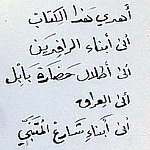 أهدي هذا الكتاب
الى أبناء الرافدين
الى أطلال حضارة بابل
الى العراق
الى أبناء شارع المتنبي